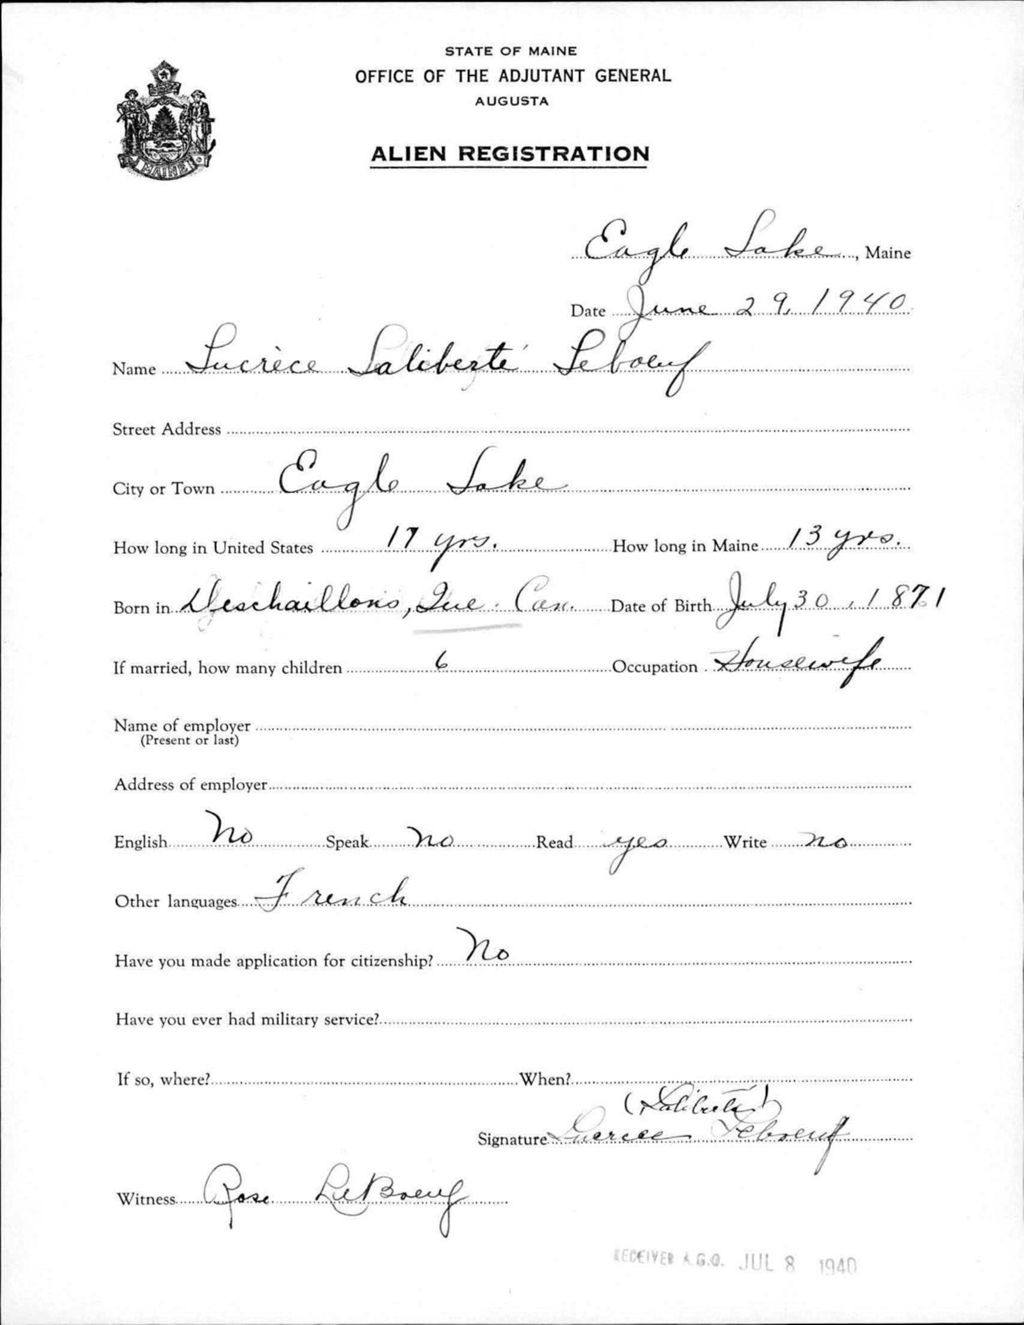 STATE OF MAINE
OFFICE OF THE ADJUTANT GENERAL
AUGUSTA
ALIEN REGISTRATION
MAINE
Eagle Lake, Maine
Date June 29, 1940
Name Lucrèce Laliberté Leboeuf
Street Address
City or Town Eagle Lake
How long in United States 17 yrs. How long in Maine 13 yrs.
Born in Deschaillons, Que. Can. Date of Birth July 30, 1871
If married, how many children 6 Occupation Housewife
Name of employer
(Present or last)
Address of employer
English No Speak No Read yes Write no
Other languages French
Have you made application for citizenship? No
Have you ever had military service?
If so, where? When?
(Laliberté)
Signature Lucrece Leboeuf
Witness Rose LeBoeuf
RECEIVED A.G.O. JUL 8 1940